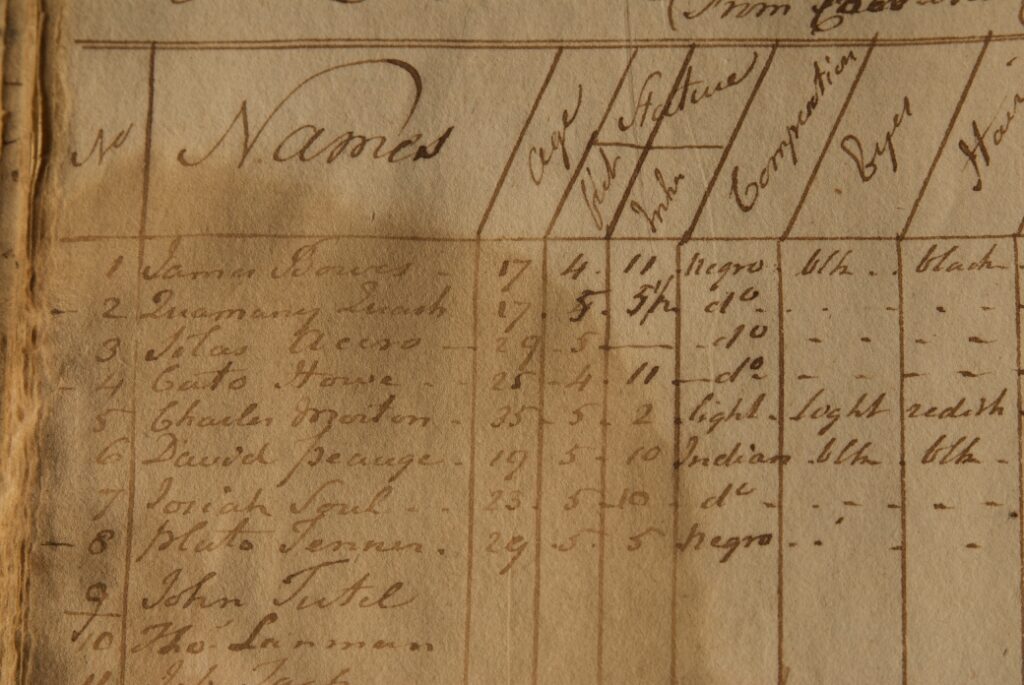 (From
No Names Age Stature Feet Inhs Complection Eyes Hair
1 James Bowes - 17 4 11 Negro blk black
2 Quamany Quash 17 5 5½ do
3 Silas Accro 29 5 do
4 Cato Howe 25 4 11 do
5 Charles Morton 35 5 2 light light redish
6 David Peauge 19 5 10 Indian blk blk
7 Josiah Soul 23 5 10 do
8 Plato Terner 29 5 5 Negro
9 John Tutel
10 Tho Lanman
11